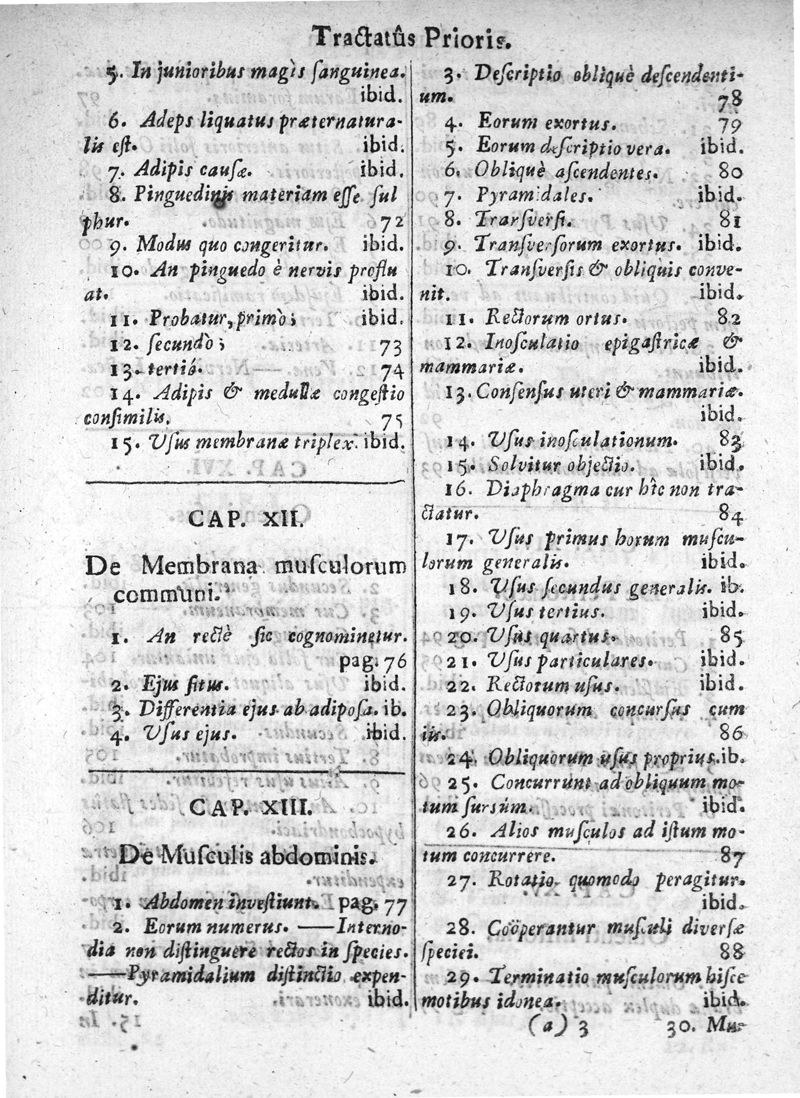 Tractatûs Prioris.
5. In junioribus magìs ſanguinea.
ibid.
6. Adeps liquatus præternatura-
lis eſt. ibid.
7. Adipis cauſæ. ibid.
8. Pinguedinis materiam eſſe ſul
phur. 72
9. Modus quo congeritur. ibid.
10. An pinguedo è nervis proflu
at. ibid.
11. Probatur, primò; ibid.
12. ſecundò; 73
13. tertiò. 74
14. Adipis & medullæ congeſtio
conſimilis. 75
15. Uſus membranæ triplex. ibid.
CAP. XII.
De Membranâ muſculorum
communi.
1. An rectè ſic cognominetur.
pag. 76
2. Ejus ſitus. ibid.
3. Differentia ejus ab adipoſa. ib.
4. Uſus ejus. ibid.
CAP. XIII.
De Muſculis abdominis.
1. Abdomen inveſtiunt. pag. 77
2. Eorum numerus. —Interno-
dia non diſtinguere rectos in ſpecies.
—Pyramidalium diſtinctio expen-
ditur. ibid.
3. Deſcriptio obliquè deſcendenti-
um. 78
4. Eorum exortus. 79
5. Eorum deſcriptio vera. ibid.
6. Obliquè aſcendentes. 80
7. Pyramidales. ibid.
8. Tranſverſi. 81
9. Tranſverſorum exortus. ibid.
10. Tranſverſis & obliquis conve-
nit. ibid.
11. Rectorum ortus. 82
12. Inoſculatio epigaſtricæ &
mammariæ. ibid.
13. Conſenſus uteri & mammariæ.
ibid.
14. Uſus inoſculationum. 83
15. Solvitur objectio. ibid.
16. Diaphragma cur hîc non tra-
ctatur. 84
17. Uſus primus horum muſcu-
lorum generalis. ibid.
18. Uſus ſecundus generalis. ib.
19. Uſus tertius. ibid.
20. Uſus quartus. 85
21. Uſus particulares. ibid.
22. Rectorum uſus. ibid.
23. Obliquorum concurſus cum
iis. 86
24. Obliquorum uſus proprius. ib.
25. Concurrunt ad obliquum mo-
tum ſursùm. ibid.
26. Alios muſculos ad iſtum mo-
tum concurrere. 87
27. Rotatio quomodo peragitur.
ibid.
28. Coöperantur muſculi diverſæ
ſpeciei. 88
29. Terminatio muſculorum hiſce
motibus idonea. ibid.
(a) 3 30. Mu-